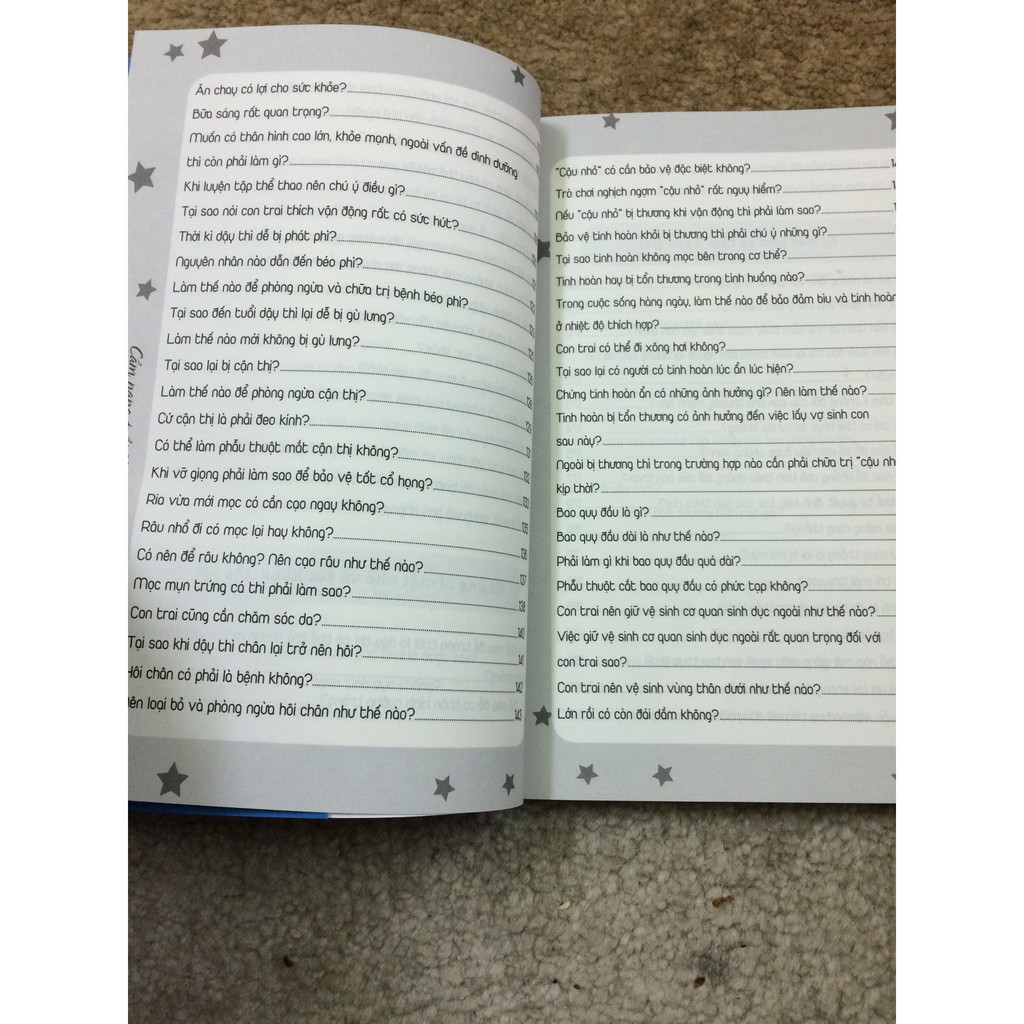 Ăn chay có lợi cho sức khỏe?
Bữa sáng rất quan trọng?
Muốn có thân hình cao lớn, khỏe mạnh, ngoài vấn đề dinh dưỡng
thì còn phải làm gì?
Khi luyện tập thể thao nên chú ý điều gì?
Tại sao nói con trai thích vận động rất có sức hút?
Thời kì dậy thì dễ bị phát phì?
Nguyên nhân nào dẫn đến béo phì?
Làm thế nào để phòng ngừa và chữa trị bệnh béo phì?
Tại sao đến tuổi dậy thì lại dễ bị gù lưng?
Làm thế nào mới không bị gù lưng?
Tại sao lại bị cận thị?
Làm thế nào để phòng ngừa cận thị?
Cứ cận thị là phải đeo kính? 129
Có thể làm phẫu thuật mắt cận thị không? 131
Khi vỡ giọng phải làm sao để bảo vệ tốt cổ họng? 132
Ria vừa mới mọc có cần cạo ngay không? 133
Râu nhổ đi có mọc lại hay không? 135
Có nên để râu không? Nên cạo râu như thế nào? 136
Mọc mụn trứng cá thì phải làm sao? 137
Con trai cũng cần chăm sóc da? 138
Tại sao khi dậy thì chân lại trở nên hôi? 140
Hôi chân có phải là bệnh không? 141
nên loại bỏ và phòng ngừa hôi chân như thế nào? 142
143
Cẩm nang
"Cậu nhỏ" có cần bảo vệ đặc biệt không?
Trò chơi nghịch ngợm "cậu nhỏ" rất nguy hiểm?
Nếu "cậu nhỏ" bị thương khi vận động thì phải làm sao?
Bảo vệ tinh hoàn khỏi bị thương thì phải chú ý những gì?
Tại sao tinh hoàn không mọc bên trong cơ thể?
Tinh hoàn hay bị tổn thương trong tình huống nào?
Trong cuộc sống hàng ngày, làm thế nào để bảo đảm bìu và tinh hoàn
ở nhiệt độ thích hợp?
Con trai có thể đi xông hơi không?
Tại sao lại có người có tinh hoàn lúc ẩn lúc hiện?
Chứng tinh hoàn ẩn có những ảnh hưởng gì? Nên làm thế nào?
Tinh hoàn bị tổn thương có ảnh hưởng đến việc lấy vợ sinh con
sau này?
Ngoài bị thương thì trong trường hợp nào cần phải chữa trị "cậu nh
kịp thời?
Bao quy đầu là gì?
Bao quy đầu dài là như thế nào?
Phải làm gì khi bao quy đầu quá dài?
Phẫu thuật cắt bao quy đầu có phức tạp không?
Con trai nên giữ vệ sinh cơ quan sinh dục ngoài như thế nào?
Việc giữ vệ sinh cơ quan sinh dục ngoài rất quan trọng đối với
con trai sao?
Con trai nên vệ sinh vùng thân dưới như thế nào?
Lớn rồi có còn đái dầm không?